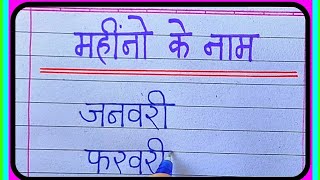 महींनो के नाम
जनवरी
फरवरी